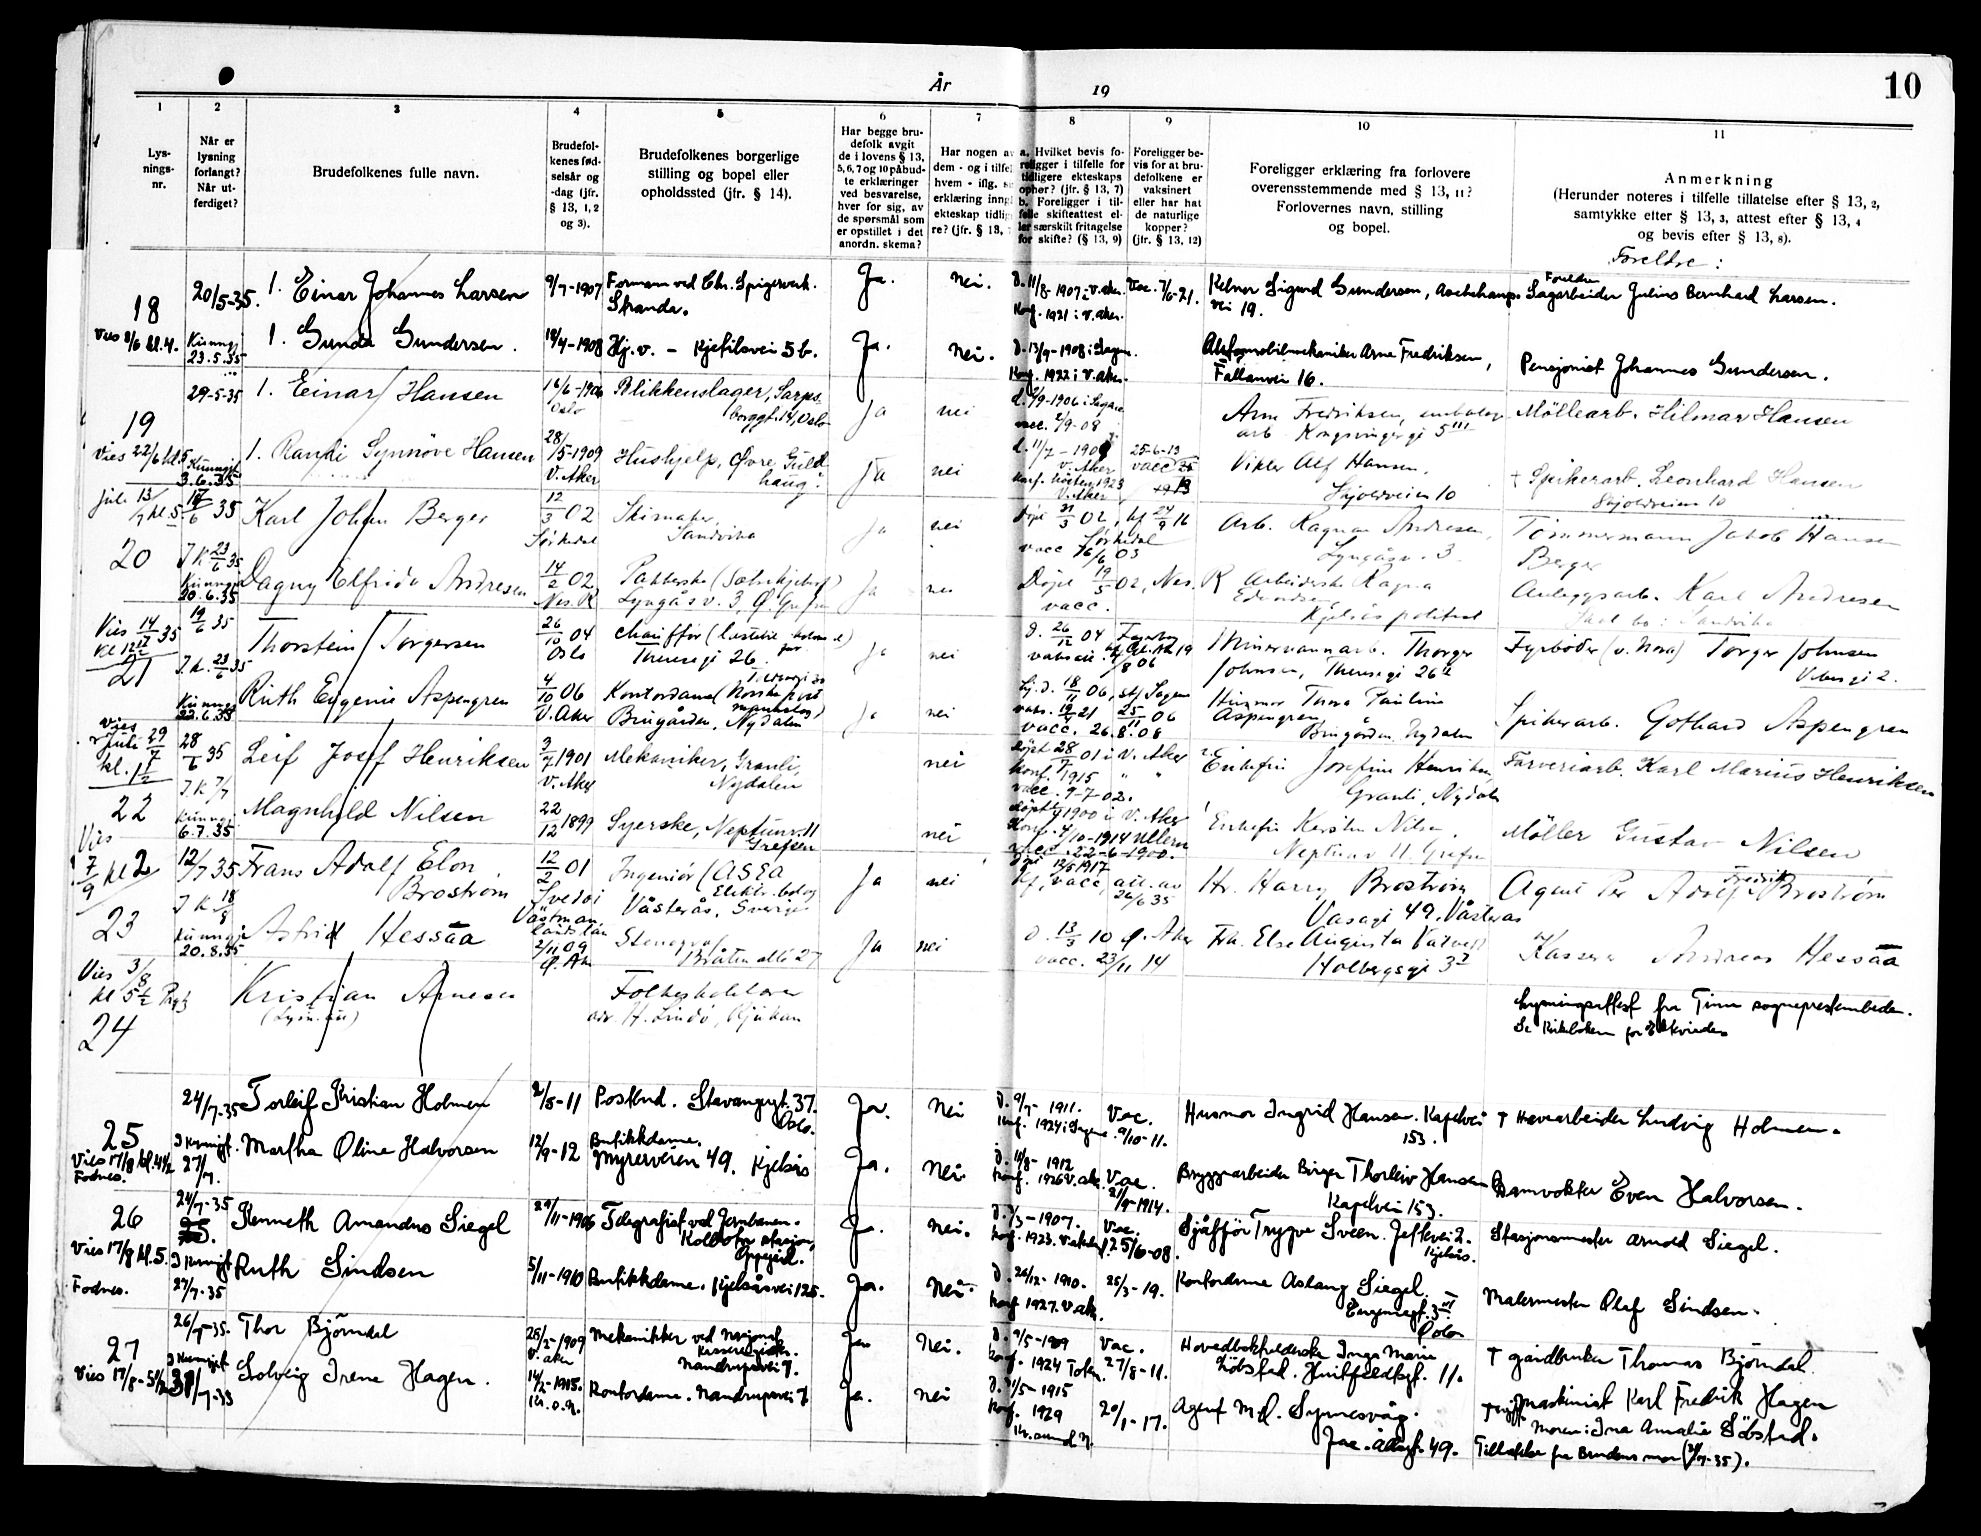 År 19
10
1
2
3
4
5
6
7
8
9
10
11
Lys-
nings-
nr.
Når er
lysning
forlangt?
Når ut-
ferdiget?
Brudefolkenes fulle navn.
Brudefol-
kenes fød-
selsår og
-dag (jfr.
§ 13, 1, 2
og 3).
Brudefolkenes borgerlige
stilling og bopel eller
opholdssted (jfr. § 14).
Har begge bru-
defolk avgit
de i lovens § 13,
5, 6, 7 og 10 påbud-
te erklæringer
ved besvarelse,
hver for sig, av
de spørsmål som
er opstillet i det
anordn. skema?
Har nogen av
dem - og i tilfel
hvem - iflg.
erklæring inng
ekteskap tidlig
re? (jfr. § 13,
a. Hvilket bevis fo-
religger i tilfelle for
tidligere ekteskaps
ophør? (jfr. § 13, 7)
b. Foreligger i til-
felle skifteattest el-
ler særskilt fritagelse
for skifte? (§ 13, 9)
Foreligger be-
vis for at bru-
defolkene er
vaksinert
eller har hat
de naturlige
kopper?
(jfr. § 13, 12)
Foreligger erklæring fra forlovere
overensstemmende med § 13, 11?
Forlovernes navn, stilling
og bopel.
Anmerkning
(Herunder noteres i tilfelle tillatelse efter § 13, 2,
samtykke efter § 13, 3, attest efter § 13, 4
og bevis efter § 13, 8).
Foreldre:
18
20/5-35.
1. Einar Johannes Larsen
9/7-1907
Formann ved Chr. Spigerverk.
Stranda.
Ja.
nei.
d. 11/8-1907 i V. aker.
Konf. 1921 i V. aker.
Vac. 7/6-21.
Kelner Sigurd Gundersen,
vei 19.
Foreldre
Sagarbeider Julius Bernhard Larsen.
Vies 8/6 kl. 4.
Kunngj.
23.5.35
1. Gunda Gundersen.
Hj. v. - Kjelsåsvei 5 b.
Ja.
nei.
d. 13/9-1908 i Sagene.
Konf. 1922 i V. aker.
Automobilmekaniker Arne Fredriksen,
Fallanvei 16.
Pensjonist Johannes Gundersen.
19
29-5-35
1. Einar Hansen
16/6-1906
Oslo
Blikkenslager, Sarps-
borggt. 14, Oslo
Ja
nei
vacc. 2/9-08
Arne Fredriksen,
arb. Kongsvingergt 5 III
Møllearb. Hilmar Hansen
Vies 22/6 kl. 5
Kunngj.
3.6.35
1. Randi Synnøve Hansen
28/5-1909
V. Aker
Hushjelp, Øvre Guld
haug.
Ja
nei
V. Aker
Konf. høsten 1923
V. Aker
25-6-13
Vikler Alf Hansen.
Skjoldveien 10
† Spikerarb. Leonhard Hansen
Skjoldveien 10
Jul. 13/7 kl. 5
20
35
Karl Johan Berger
12/3 02
Sørkedal
Skimaker,
Sandvika
Ja
nei
Døpt 31/3 02, kf 24/9 16
Sørkedal
vacc 16/6 03
Arb. Ragnar Andresen,
Lyngåsv. 3
Tømmermann Jacob Hansen
Berger
J K 23/6 35
Kunngj.
20.6.35
Dagny Elfrida Andresen
14/2 02
Nes. R
Pakkerske
Lyngåsv. 3, Ø. Grefsen
Ja
nei
Døpt 19/5 02, Nes. R
vacc.
Arbeiderske Ragna
Edvardsen
Anleggsarb. Karl Andresen
Skal bo: Sandvika
Vies 14/12 35
21
19/6 35
Thorstein Torgersen
26/10 04
Oslo
Chauffør
Theresegt 26.
Ja
nei
d. 26/12 04
Minervannarb. Thorger
Johnsen, Theresegt 26
Fyrbøder (v. Nora) Torger Johnsen
Vibesgt 2.
J. k. 23/6 35
Kunngj.
22.6.35
Ruth Eugenie Aspengren
4/10 06
V. Aker
Kontordame
Brugården, Nydalen
Ja
nei
vacc. 26.8.08
Husmor Thora Pauline
Aspengren
Brugården Nydalen
Spikerarb. Gothard Aspengren
Vies
Juli 29/7
kl. 1 1/2
22
28/6 35
J K 7/7
Leif Josef Henriksen
3/7 1901
V. Aker
Mekaniker, Granli,
Nydalen
nei
døpt 28/7 01 i V. Aker
Konf. 1915 " "
vacc. 9-7-02.
Enkefru Josefine Henriksen
Granli, Nydalen
Farveriarb. Karl Marius Henriksen
Kunngj.
6.7.35
Magnhild Nilsen
22/12 1899
Syerske, Neptunv. 11
Grefsen
nei
1900 i V. Aker
Konf. 4/10-1914 Ullern
vacc. 22-6-1900.
Enkefru Karsten Nilsen.
Neptunv 11. Grefsen
Møller Gustav Nilsen
Vies
7/9 kl 2
23
12/7 35
J K 18/8
Frans Adolf Elon
Broström
12/2 01
Svedvi
Västman
lands län
Ingeniør (ASEA
Elektr. bolag
Västerås, Sverige
Ja
nei
kf, vacc, att. av
26/6 35
Hr. Harry Broström
Vasagt 49. Västerås
Agent Per Adolf Fredrik Broström
Kunngj.
20.8.35
Astrid Hessaa
2/11 09
Ø. Ak
Stenograf
Bråten allé 27
Ja
nei
d. 13/3 10 Ø. Aker
vacc. 23/11 14
Frk. Else Augusta
Holbergsgt 3
Kasserer Andreas Hessaa
Vies 3/8
kl 5 1/2
24
Kristian Arnesen
Folkeskolelærer
adr. H. Lindö, Rjukan
Lysningsattest fra Tinn sogneprestembede.
25
24/7-35
Torleif Kristian Holmen
2/8-11
Postbud. Stavangergt. 37.
Oslo.
Ja.
Nei
d. 9/9-1911.
Konf. 1924 i Sagene.
Vac.
9/10-11.
Husmor Ingrid Hansen. Kapelvei
153.
† Havearbeider Ludvig Holmen.
Vies 17/8 kl. 4 1/2
Fodnes.
J Kunngjt.
27/7.
Martha Oline Halvorsen
12/9-12
Butikkdame.
Myrerveien 49. Kjelsås
Ja.
Nei.
Konf. 1926 V. aker.
Vac.
21/9-1914.
Bryggearbeider Birger Thorleiv Hansen
Kapelvei 153.
Damvokter Even Halvorsen.
26
24/7-35
Kenneth Amandus Siegel
29/11-1906
Telegrafist ved Jernbanen.
Kolbotn stasjon,
Oppegård.
Ja.
Nei.
d. 7/3-1907.
Konf. 1923. V. aker
Vac.
25/6-08.
Sjåfför Trygve Sveen. Jeftevei 2.
Kjelsås.
Stasjonsmester Arnold Siegel.
Vies 17/8 kl. 5.
Fodnes.
J Kunngjt
27/7-35
Ruth Sindsen
5/11-1910
Butikkdame. Kjelsåsvei 125.
Ja.
Nei.
d. 26/12-1910.
Konf 1927. V. aker.
25/3-19.
Kontordame Aslaug Siegel.
Oslo
Malermester Olaf Sindsen.
27
26/7-35.
Thor Björndal
28/2-1909
V. aker
Mekanikker ved Nasjonal
Nandrupsvei 7.
Ja
Nei.
d. 9/5-1909
Konf. 1924 Toten.
Vac.
27/8-11.
Hovedbokholderske Inga Marie
Söbstad. Huitfeldtsgt. 11.
† gårdbruker Thomas Björndal.
Vies 17/8-5 1/2
J Kunngjt
31/7-35
Solveig Irene Hagen.
14/2-1915.
Kontordame. Nandrupsvei 7
Ja.
nei
d. 21/5-1915
Konf. 1929
Kr. sund N.
20/1-17.
Agent M. O. Synnesvåg.
Jac. Aallsgt. 49.
Maskinist Karl Fredrik Hagen
Moren: Ina Amalie Söbstad.
Tillatelse fra Brudens mor (24/7-35).